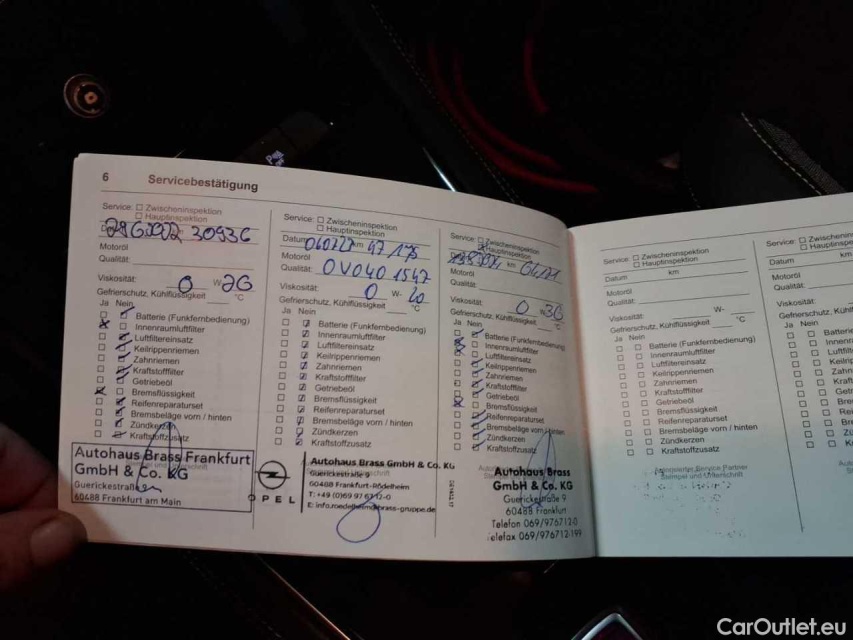 6 Servicebestätigung
Service: Zwischeninspektion
Hauptinspektion
30936
Motoröl
Qualität:
Viskosität: 0 W 20
Gefrierschutz, Kühlflüssigkeit °C
Ja Nein
Batterie (Funkfernbedienung)
Innenraumluftfilter
Luftfiltereinsatz
Keilrippenriemen
Zahnriemen
Kraftstofffilter
Getriebeöl
Bremsflüssigkeit
Reifenreparaturset
Bremsbeläge vorn / hinten
Zündkerzen
Kraftstoffzusatz
Autohaus Brass Frankfurt
GmbH & Co. KG
Guerickestraße
60488 Frankfurt am Main
Service: Zwischeninspektion
Hauptinspektion
Datum 060722 km 47175
Motoröl
Qualität: OV040 1547
Viskosität: 0 W- 20
Gefrierschutz, Kühlflüssigkeit °C
Ja Nein
Batterie (Funkfernbedienung)
Innenraumluftfilter
Luftfiltereinsatz
Keilrippenriemen
Zahnriemen
Kraftstofffilter
Getriebeöl
Bremsflüssigkeit
Reifenreparaturset
Bremsbeläge vorn / hinten
Zündkerzen
Kraftstoffzusatz
OPEL
Autohaus Brass GmbH & Co. KG
Guerickestraße 9
60488 Frankfurt-Rödelheim
T: +49 (0)69 97 67 12-0
E: info.roedelheim@brass-gruppe.de
Service: Zwischeninspektion
Hauptinspektion
km
Motoröl
Qualität:
Viskosität: 0 W 30
Gefrierschutz, Kühlflüssigkeit °C
Ja Nein
Batterie (Funkfernbedienung)
Innenraumluftfilter
Luftfiltereinsatz
Keilrippenriemen
Zahnriemen
Kraftstofffilter
Getriebeöl
Bremsflüssigkeit
Reifenreparaturset
Bremsbeläge vorn / hinten
Zündkerzen
Kraftstoffzusatz
Autohaus Brass
GmbH & Co. KG
Guerickestraße 9
60488 Frankfurt
Telefon 069/976712-0
Telefax 069/976712-199
Service: Zwischeninspektion
Hauptinspektion
Datum km
Motoröl
Qualität:
Viskosität: W-
Gefrierschutz, Kühlflüssigkeit °C
Ja Nein
Batterie (Funkfernbedienung)
Innenraumluftfilter
Luftfiltereinsatz
Keilrippenriemen
Zahnriemen
Kraftstofffilter
Getriebeöl
Bremsflüssigkeit
Reifenreparaturset
Bremsbeläge vorn / hinten
Zündkerzen
Kraftstoffzusatz
Autorisierter Service Partner
Stempel und Unterschrift
Service: Zwischenin
Hauptinspe
Datum
Motoröl
Qualität:
Viskosität:
Gefrierschutz, Kühlflü
Ja Nein
Batterie (Fu
Innenraum
Luftfilterei
Keilrippe
Zahnr
Kraft
Getr
Bre
Rei
Bre
Zü
Kr
CarOutlet.eu